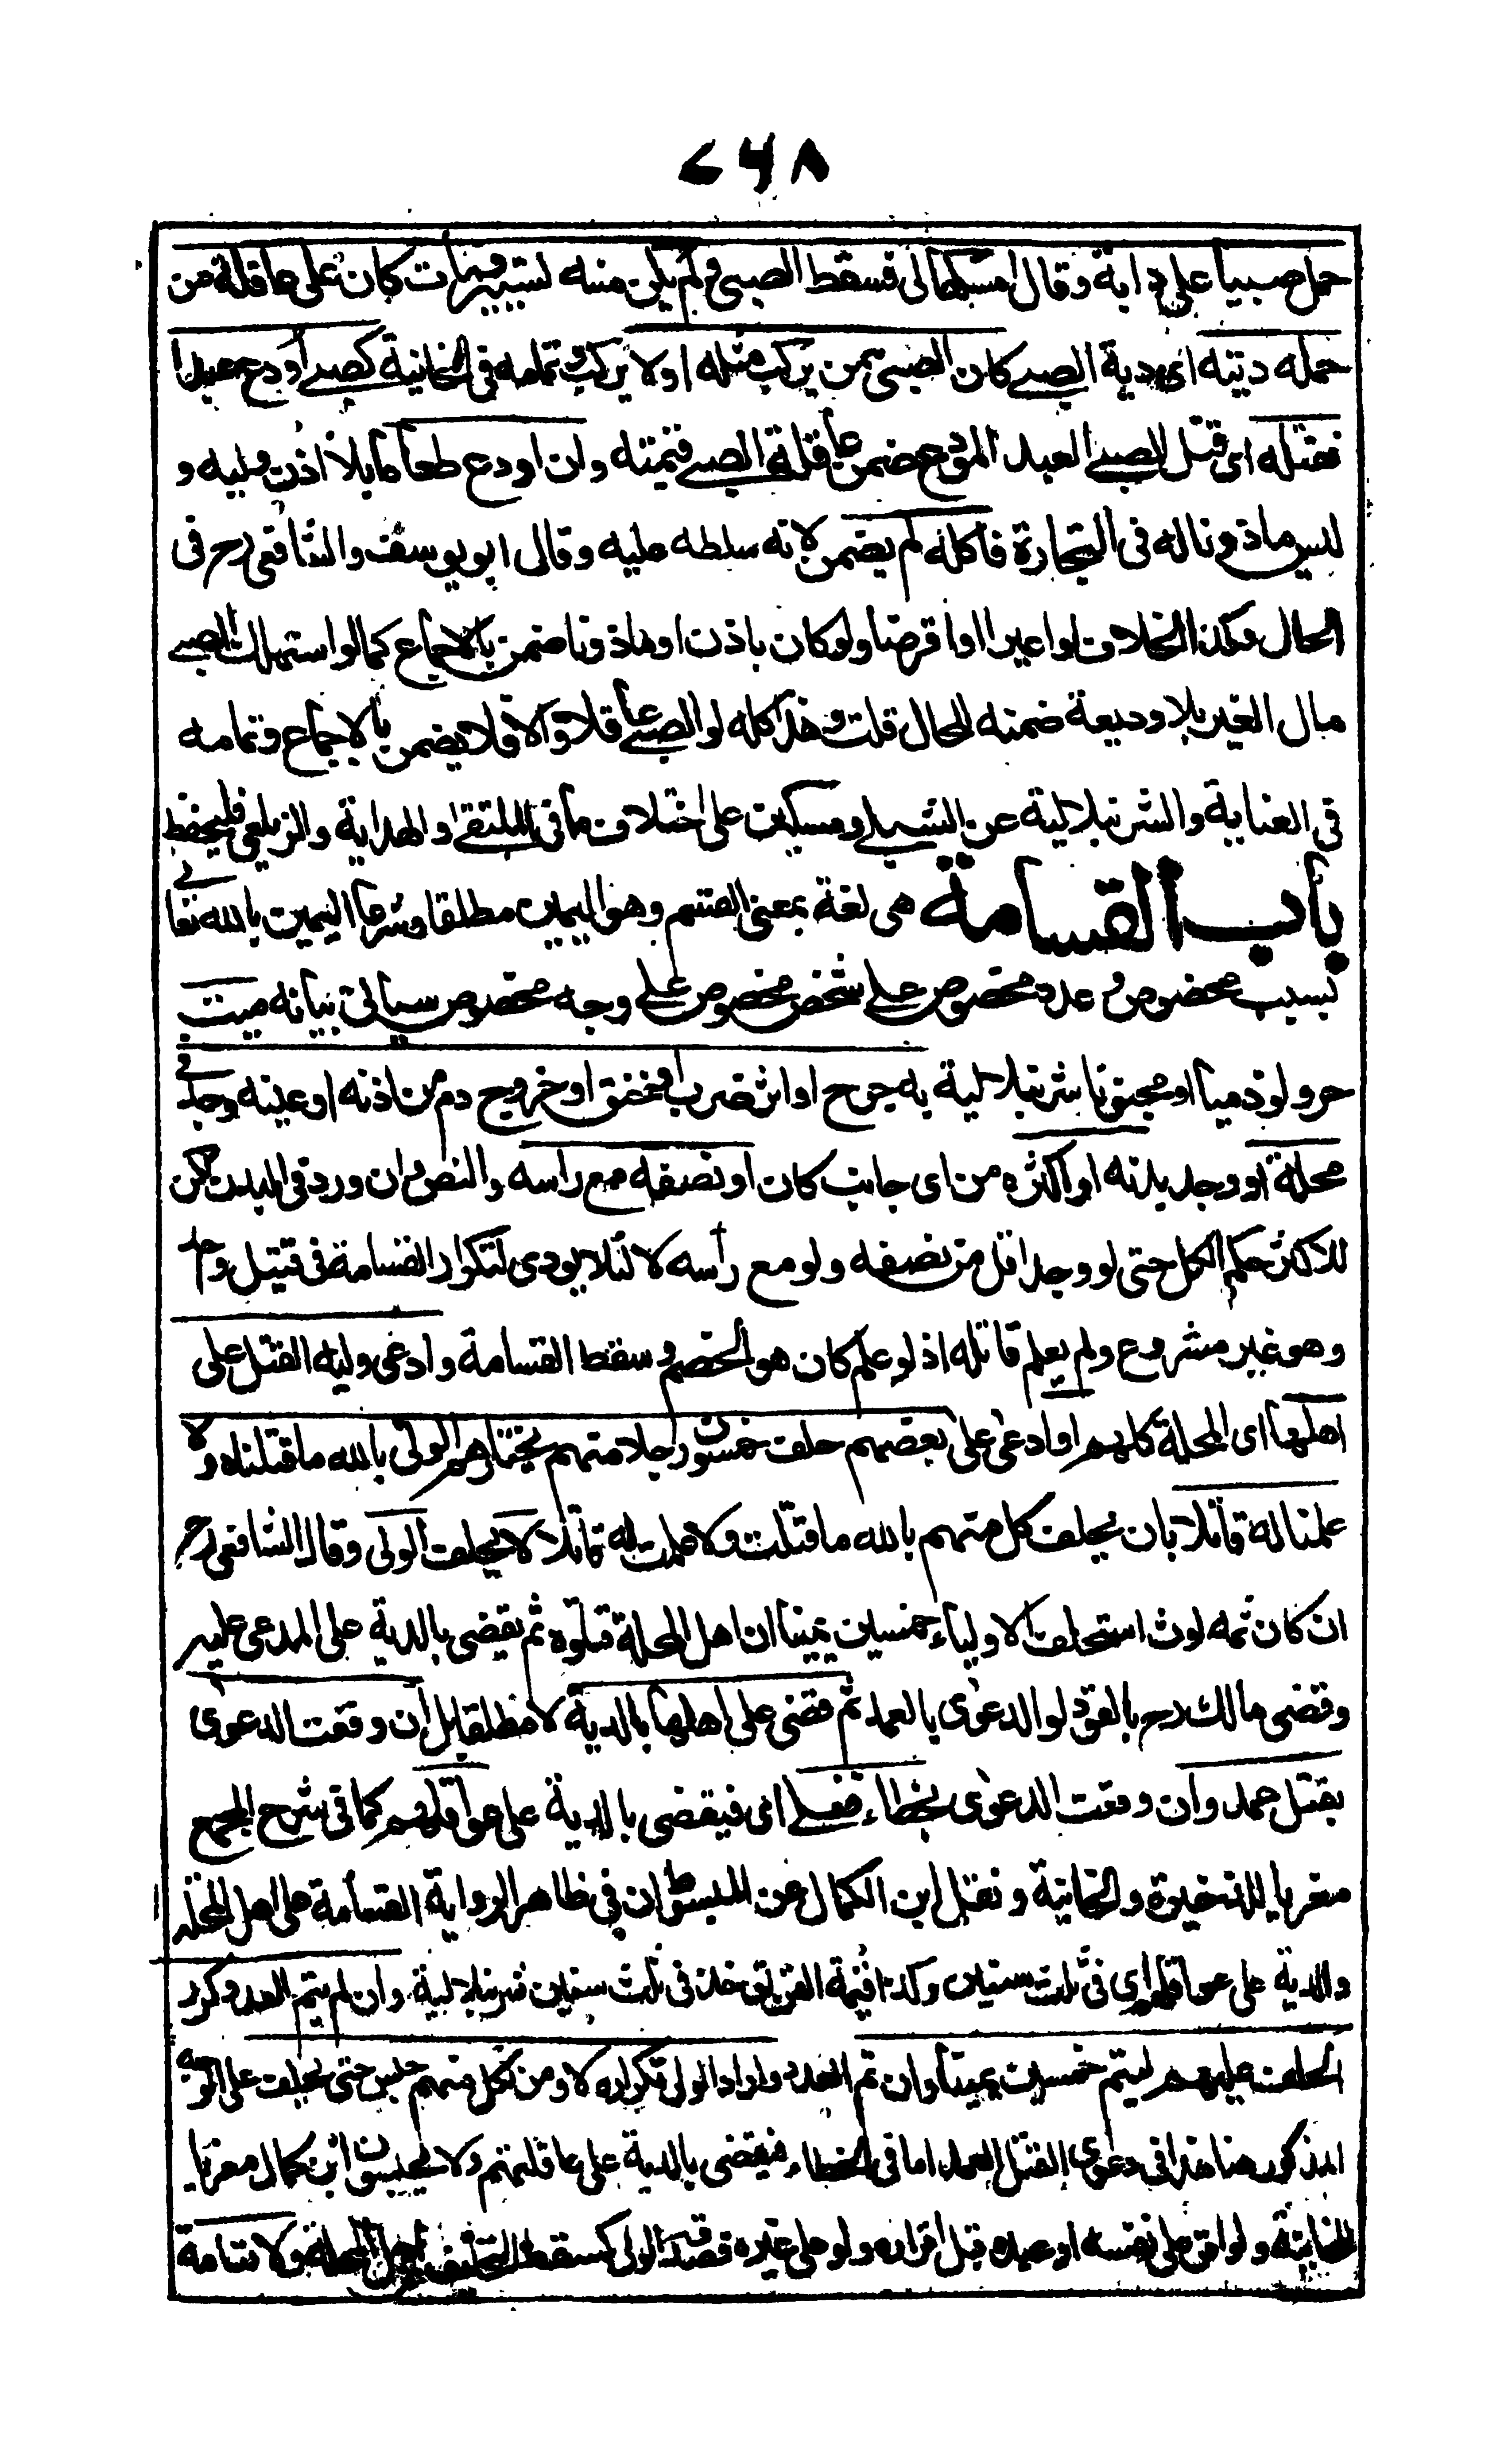 ٧٦٨
حمل صبيا على دابة وقال امسكها لى فسقط الصبى ولم يكن منه تسيير ومات كان على عاقلة من
حمله ديته اى دية الصبى كان الصبى ممن يركب مثله او لا يركب تمامه فى الخانية كصبى اودع عبدا
فقتله اى قتل الصبى العبد المودع ضمن عاقلة الصبى قيمته وان اودع طعاما بلا اذن وليه و
ليس ماذونا له فى التجارة فاكله لم يضمن لانه سلطه عليه وقال ابو يوسف والشافعى رح فى
الحال وكذا الخلاف لو اعير او اقرضا ولو كان باذن او ماذونا ضمن بالاجماع كما لو استهلك الصبى
مال الغير بلا وديعة ضمنه للحال قلت وهذا كله لو الصبى عاقلا والا فلا يضمن بالاجماع وتمامه
فى العناية والشرنبلالية عن الشبلى ومسكين على اختلاف ما فى الملتقى والهداية والزيلعى فليحفظ
باب القسامة هى لغة بمعنى القسم وهو اليمين مطلقا وشرعا اليمين بالله تعالى
بسبب مخصوص وعدد مخصوص على شخص مخصوص على وجه مخصوص سياتى بيانه ميت
حر ولو ذميا او مجنونا شرنبلالية به جرح او اثر ضرب او خنق او خروج دم من اذنه او عينه وجد فى
محلة او وجد بدنه او اكثره من اى جانب كان او نصفه مع راسه والنص وان ورد فى البدن لكن
للاكثر حكم الكل حتى لو وجد اقل من نصفه ولو مع رأسه لا لئلا يودى لتكرار القسامة فى قتيل واحد
وهو غير مشروع ولم يعلم قاتله اذ لو علم كان هو الخصم وسقط القسامة وادعى وليه القتل على
اهلها اى المحلة كلهم او ادعى على بعضهم حلف خمسون رجلا منهم يختارهم الولى بالله ما قتلناه ولا
علمنا له قاتلا بان يحلف كل منهم بالله ما قتلت ولا علمت له قاتلا لا يحلف الولى وقال الشافعى رح
ان كان ثمه لوث استحلف الاولياء خمسين يمينا ان اهل المحلة قتلوه ثم يقضى بالدية على المدعى عليه
وقضى مالك رح بالقود لو الدعوى بالعمد ثم قضى على اهلها بالدية لا مطلقا بل ان وقعت الدعوى
بقتل عمد وان وقعت الدعوى بخطاء فعلى اى فيقضى بالدية على عواقلهم كما فى شرح المجمع
معزيا للذخيرة والخانية ونقل ابن الكمال عن المبسوط ان فى ظاهر الرواية القسامة على اهل المحلة
والدية على عواقلهم اى فى ثلث سنين وكذا قيمة القن يؤخذ فى ثلث سنين شرنبلالية وان لم يتم العدد كرر
الحلف عليهم ليتم خمسين يمينا وان تم العدد واراد الولى تكراره لا ومن نكل منهم حبس حتى يحلف على الوجه
المذكور هنا هذا فى دعوى القتل العمد اما فى الخطاء فيقضى بالدية على عاقلتهم ولا يحبسون ابن كمال معزيا
للخانية ولو اقر على نفسه او عبده قبل اقراره ولو على غيره فصدقه الولى سقط التحليف عن اهل المحلة ولا قسامة